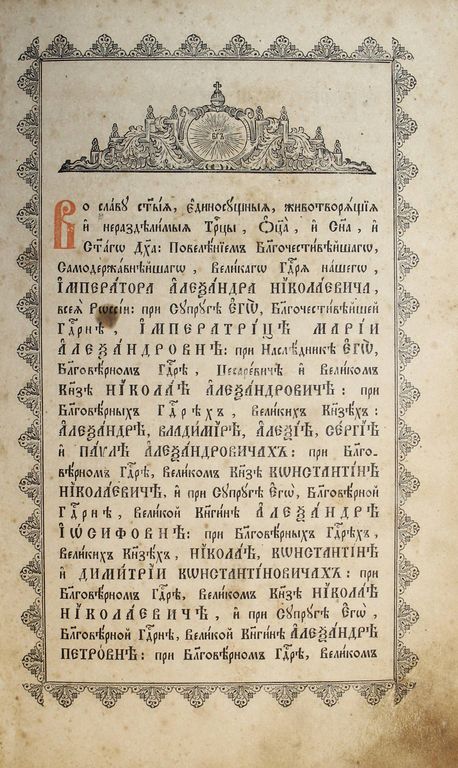 БГЪ
Во славу ст҃ыѧ, єдиносущныѧ, животворѧщїѧ
и҆ нераздѣлимыѧ Трⷪ҇цы, Ѻ҆ц҃а, и҆ Сн҃а, и҆
Ст҃агѡ Дх҃а: Повелѣнїемъ Бл҃гочестивѣйшагѡ,
Самодержавнѣйшагѡ, Великагѡ Гдⷭ҇рѧ нашегѡ,
І҆МПЕРАТОРА А҆ЛЕѮАНДРА НІКОЛАЕВИЧА,
всеѧ Рѡссїи: при Супругѣ Є҆ГѠ̀, Бл҃гочестивѣйшей
Гдⷭ҇рнѣ, І҆МПЕРАТРИЦѢ МАРІИ
А҆ЛЕѮАНДРОВНѢ: при Наслѣдникѣ Є҆ГѠ̀,
Бл҃говѣрномъ Гдⷭ҇рѣ, Цесаревичѣ и҆ Великомъ
Кн҃зѣ НІКОЛАѢ А҆ЛЕѮАНДРОВИЧѢ: при
Бл҃говѣрныхъ Гдⷭ҇рѣхъ, Великихъ Кн҃зѣхъ:
А҆ЛЕѮАНДРѢ, ВЛАДИМІРѢ, А҆ЛЕѮІѢ, СЕРГІѢ
и҆ ПАѴЛѢ А҆ЛЕѮАНДРОВИЧАХЪ: при Бл҃го-
вѣрномъ Гдⷭ҇рѣ, Великомъ Кн҃зѣ КѠНСТАНТІНѢ
НІКОЛАЕВИЧѢ, и҆ при Супругѣ Є҆гѡ̀, Бл҃говѣрной
Гдⷭ҇рнѣ, Великой Кн҃гинѣ А҆ЛЕѮАНДРѢ
І҆ѠСИФОВНѢ: при Бл҃говѣрныхъ Гдⷭ҇рѣхъ,
Великихъ Кн҃зѣхъ, НІКОЛАѢ, КѠНСТАНТІНѢ
и҆ ДИМИТРІИ КѠНСТАНТІНОВИЧАХЪ: при
Бл҃говѣрномъ Гдⷭ҇рѣ, Великомъ Кн҃зѣ НІКОЛАѢ
НІКОЛАЕВИЧѢ, и҆ при Супругѣ Є҆гѡ̀,
Бл҃говѣрной Гдⷭ҇рнѣ, Великой Кн҃гинѣ А҆ЛЕѮАНДРѢ
ПЕТРОВНѢ: при Бл҃говѣрномъ Гдⷭ҇рѣ, Великомъ